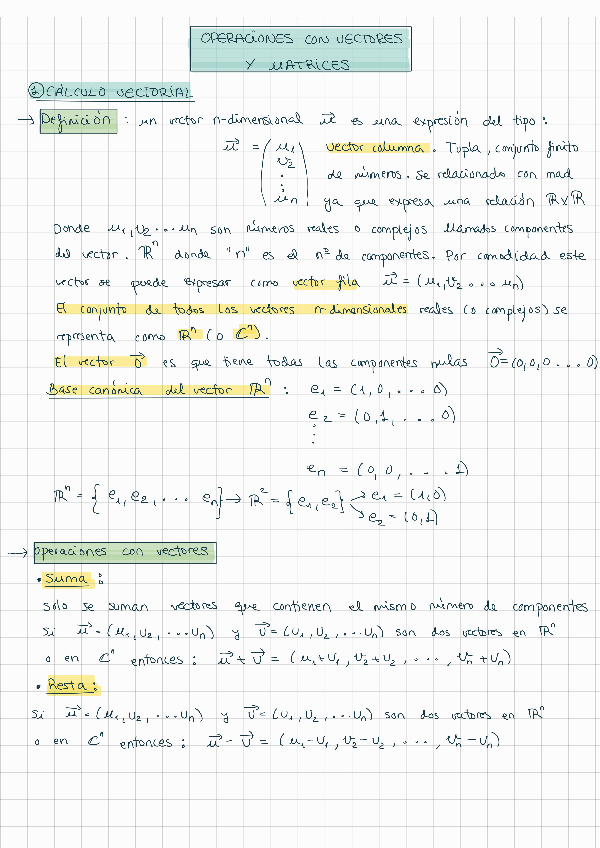 OPERACIONES CON VECTORES
Y MATRICES
1) CÁLCULO VECTORIAL
→ Definición : un vector n-dimensional u⃗ es una expresión del tipo :
u⃗ = ( u₁ vector columna . Tupla, conjunto finito
v₂
. de números. Se relacionado con mad
:
uₙ ) ya que expresa una relación ℝxℝ
Donde u₁, v₂ ... uₙ son números reales o complejos llamados componentes
del vector. ℝⁿ donde "n" es el nº de componentes. Por comodidad este
vector se puede expresar como vector fila u⃗ = (u₁, v₂ ... uₙ)
El conjunto de todos los vectores n-dimensionales reales (o complejos) se
representa como ℝⁿ (o ℂⁿ).
El vector 0⃗ es que tiene todas las componentes nulas 0⃗ = (0,0,0 ... 0)
Base canónica del vector ℝⁿ : e₁ = (1,0, ... 0)
e₂ = (0,1, ... 0)
:
eₙ = (0,0, ... 1)
ℝⁿ = { e₁, e₂, ... eₙ } → ℝ² = { e₁, e₂ } → e₁ = (1,0)
↘ e₂ = (0,1)
→ Operaciones con vectores
• Suma :
Solo se suman vectores que contienen el mismo número de componentes
Si u⃗ = (u₁, v₂, ... vₙ) y v⃗ = (v₁, v₂, ... vₙ) son dos vectores en ℝⁿ
o en ℂⁿ entonces : u⃗ + v⃗ = (u₁+v₁, v₂+v₂, ..., vₙ+vₙ)
• Resta :
Si u⃗ = (u₁, v₂, ... vₙ) y v⃗ = (v₁, v₂, ... vₙ) son dos vectores en ℝⁿ
o en ℂⁿ entonces : u⃗ - v⃗ = (u₁-v₁, v₂-v₂, ..., vₙ-vₙ)